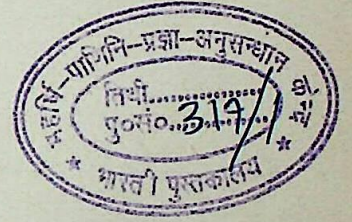 महर्षि-पाणिनि-प्रज्ञा-अनुसन्धान
तिथी..............
पु०सं०....317/1
* भारती पुस्तकालय *